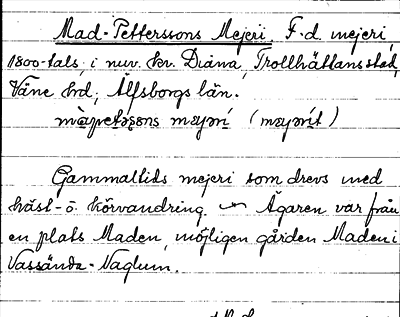 Mad-Petterssons Mejeri, F.d. mejeri,
1800-tals, i nuv. kv. Diana, Trollhättans stad,
Väne hrd, Älfsborgs län.
Gammaltids mejeri som drevs med
häst- o. körvandring. Ägaren var från
en plats Maden, möjligen gården Maden i
Vassända-Naglum.